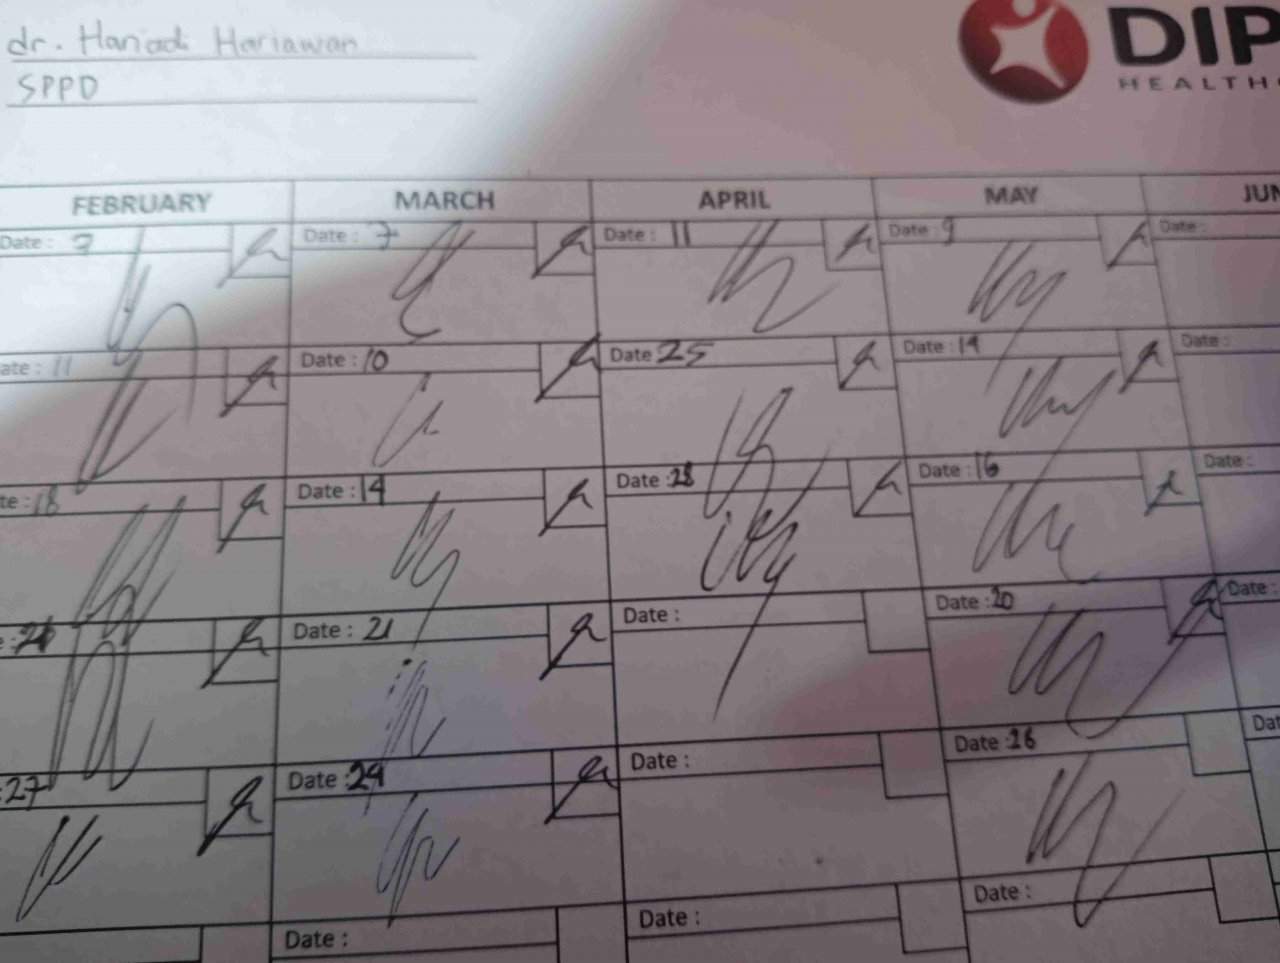 dr. Hariadi Hariawan
SPPD
DIP
HEALTH
FEBRUARY MARCH APRIL MAY JUN
Date : 7 Date : 7 Date : 11 Date : 9 Date :
ate : 11 Date : 10 Date 25 Date : 14 Date :
te : 18 Date : 14 Date : 28 Date : 16 Date :
Date : 21 Date : Date : 20 Date :
: 27 Date : 24 Date : Date : 26 Dat
Date : Date : Date :